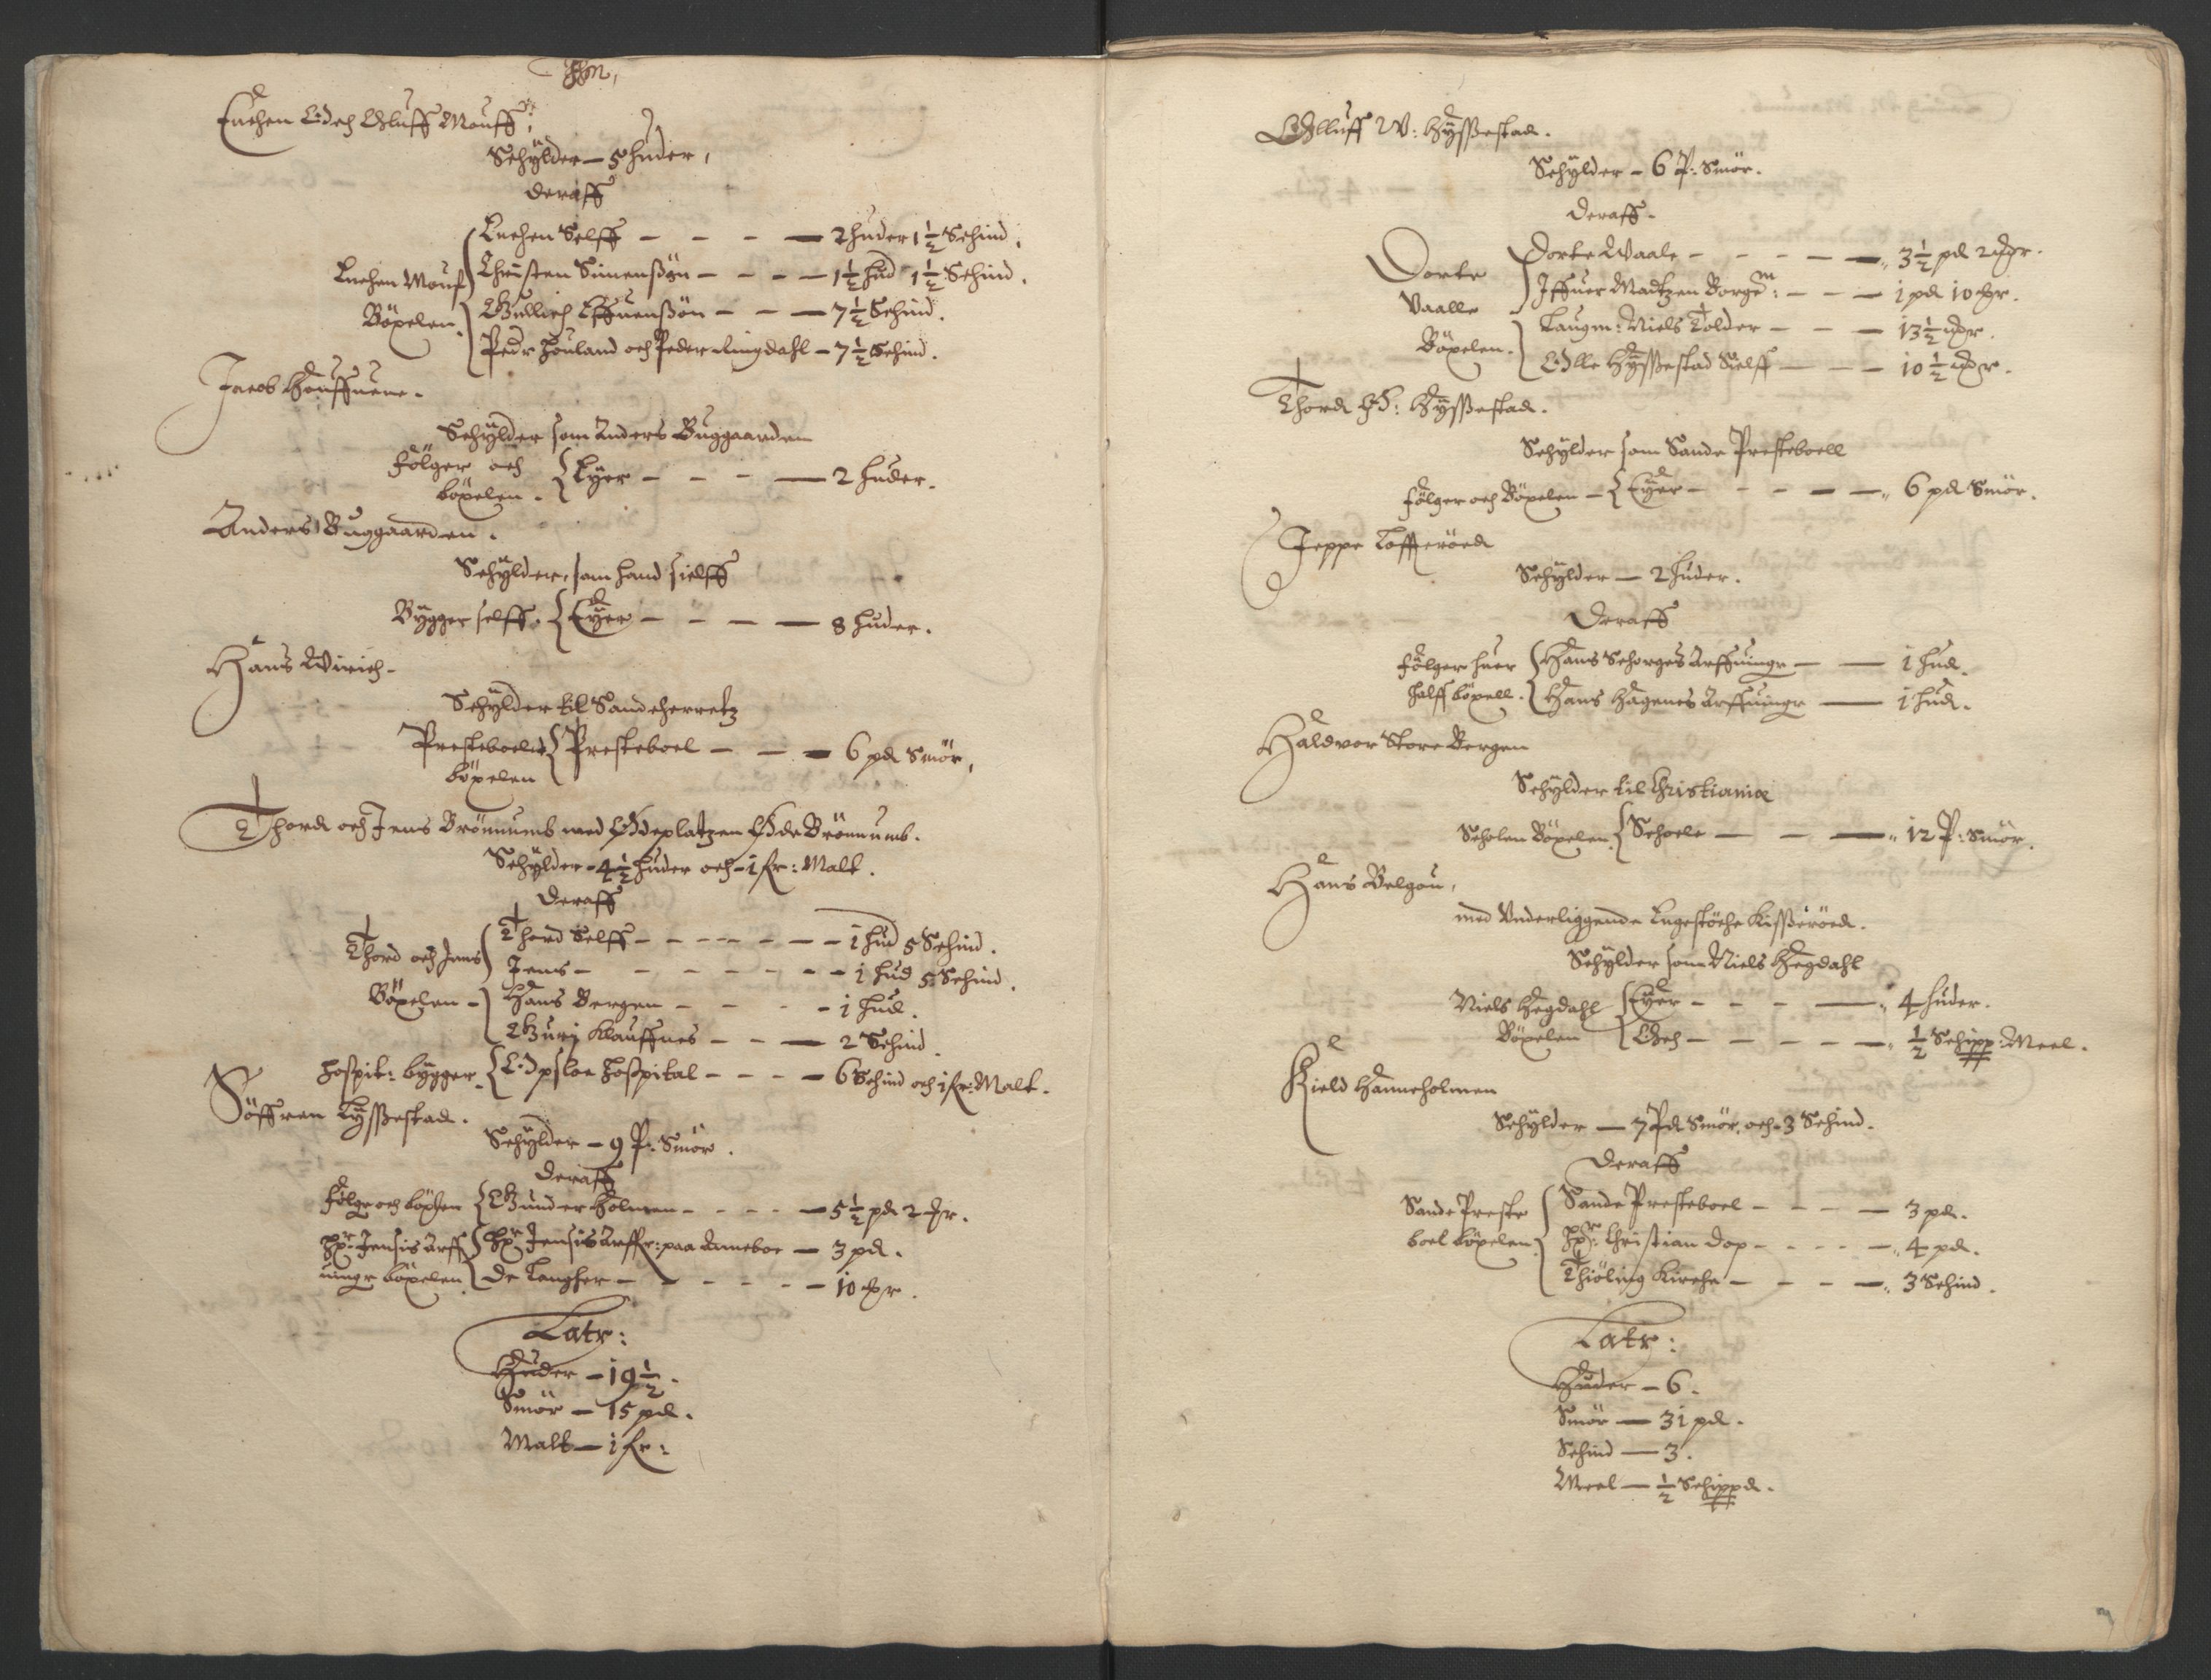 Luchen och Oluff Mouff:
Schylder — 5 huder,
deraff
Luchen Selff — — — — 2 huder 1½ Schind.
Luchen Mouf Christen Simenssøn — — — 1½ hud 1½ Schind.
Böxelen. Gullich Effuenssön — — — 7½ Schind.
Peder houland och Peder Ringdahl — 7½ Schind.
Jacob Houffuene.
Schylder som Anders Buggaarden
fölger och Eyer — — — — 2 huder.
böxelen.
Anders Buggaarden.
Schylder, som hand sielff
Bygger selff. Eyer — — — — 8 huder.
Hans Wirich.
Schylder til Sandeherretz
Presteboelet Presteboel — — — 6 pd Smör,
böxelen
Thord och Jens Brönnumb med Ödeplatzen Öde Brönnumb.
Schylder — 4½ huder och — 1 fr: Malt.
deraff
Thord Selff — — — — 1 hud 5 Schind.
Thord och Jens Jens — — — — 1 hud 5 Schind.
Böxelen — Hans Bergen — — — 1 hud.
Guri Klauffnes — — — 2 Schind.
hospit: bygger. Opsloe Hospital — — — 6 Schind och 1 fr: Malt.
Söffren Kyssestad.
Schylder — 9 P: Smör.
deraff
fölger och böxlen Gunder Holmen — — — 5½ pd 2 mr.
Hr: Jensis Arff Hr: Jensis Arffr: paa Anneboe — 3 pd.
uingr böxelen De Langher — — — — 10 mr.
Latr:
Huder — 19½.
Smör — 15 pd.
Malt — 1 fr:
Olluff W: Hyssestad.
Schylder — 6 P: Smör.
deraff.
Dorte Dorte Waale — — — — 3½ pd 2 mr.
Vaalle Iffuer Madtzen Borgem: — — — 1 pd 10 mr.
Laugm: Niels Tolder — — — 13½ mr.
Böxelen. Olle Hyssestad Sielff — — — 10½ mr.
Thord Ö: Hyssestad.
Schylder som Sande Presteboell
fölger och Böxelen — Eyer — — — — 6 pd Smör.
Jeppe Lofferöed
Schylder — 2 huder.
Deraff
fölger huer Hans Schorges Arffuingr — — 1 hud.
halff böxell. Hans Hagenes Arffuingr — 1 hud.
Haldvor Store Bergen
Schylder til Christiania
Scholen Böxelen. Schoele — — — 12 P: Smör.
Hans Belgou,
med Vnderliggende Engestöche Kisseröed.
Schylder som Niels Hegdahl
Niels Hegdahl Eyer — — — — 4 huder.
Böxelen Och — — — — ½ Schipp: Meel.
Kield Hanneholmen
Schylder — 7 Pd Smör, och 3 Schind.
Deraff
Sande Preste Sande Presteboel — — — 3 pd.
boel böxelen. Hr: Christian Dop — — — 4 pd.
Thiöling Kirche — — — 3 Schind.
Latr:
Huder — 6.
Smör — 31 pd.
Schind — 3.
Meel — ½ Schippd.